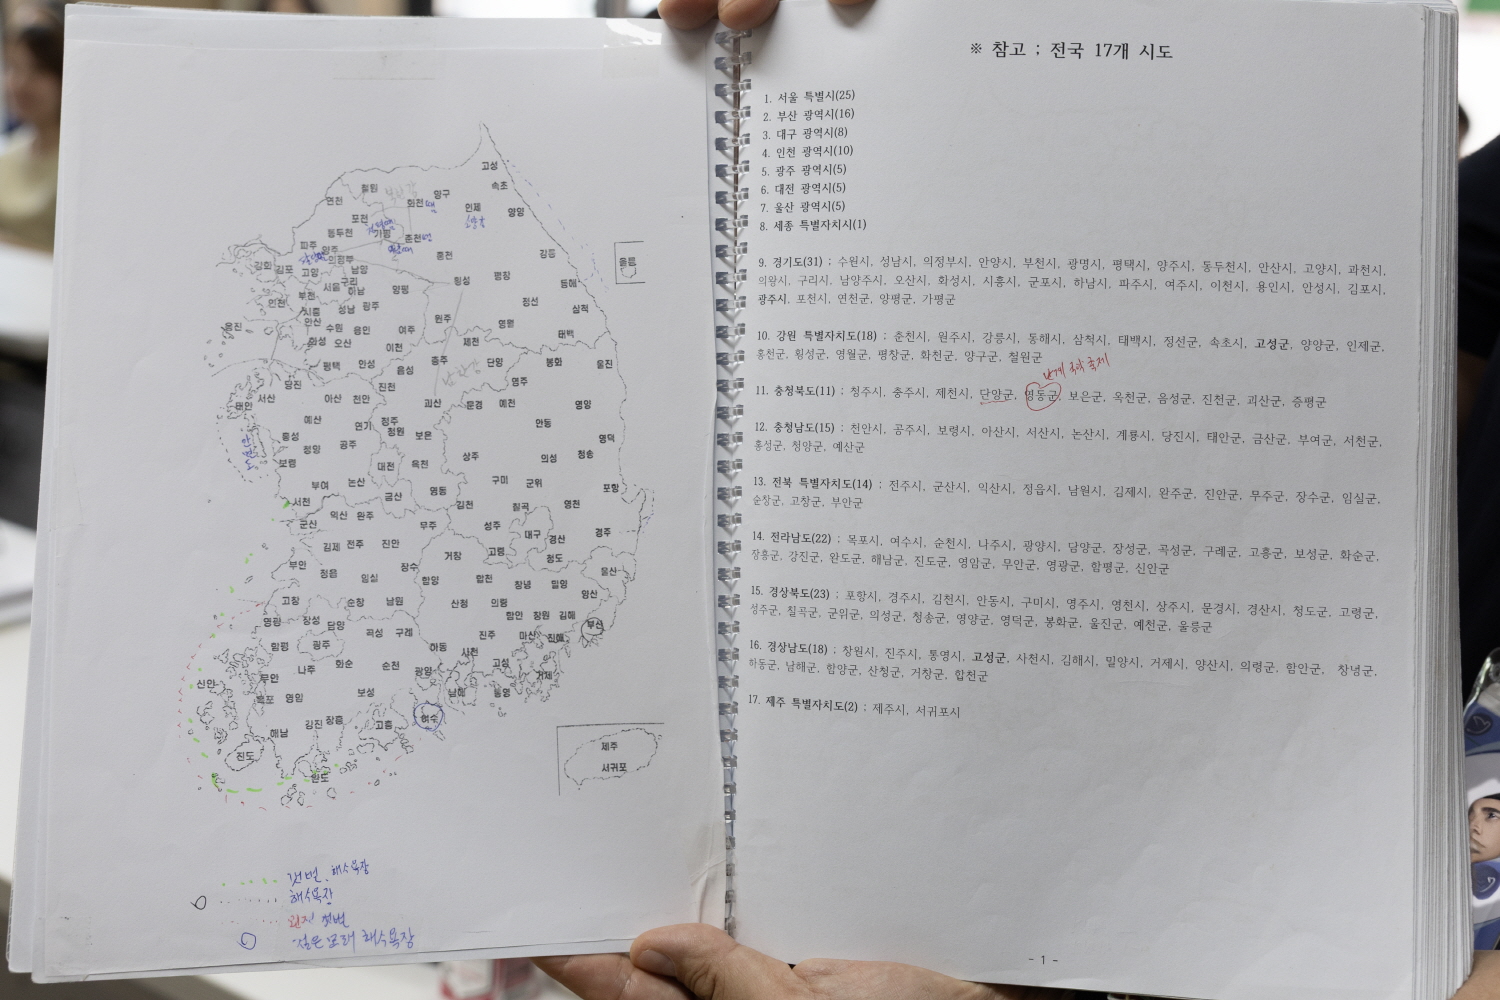 고성
철원
양구
속초
연천
화천
인제
양양
포천
동두천
가평
춘천
파주
양주
의정부
홍천
강릉
울릉
강화
김포
고양
남양
구리
횡성
평창
동해
서울
하남
양평
부천
인천
시흥
성남
광주
정선
삼척
안산
옹진
수원
용인
여주
원주
영월
태백
화성
오산
이천
제천
평택
안성
음성
충주
단양
봉화
울진
당진
진천
영주
태안
서산
아산
천안
괴산
문경
예천
영양
예산
연기
청주
청원
안동
홍성
청양
공주
보은
영덕
보령
대전
옥천
상주
의성
청송
부여
논산
금산
영동
구미
군위
포항
서천
익산
완주
김천
칠곡
영천
군산
무주
성주
대구
경산
경주
김제
전주
진안
거창
고령
청도
부안
정읍
임실
장수
함양
합천
창녕
밀양
울산
고창
순창
남원
산청
의령
양산
영광
장성
담양
함안
창원
김해
부산
곡성
구례
진주
마산
진해
함평
광주
하동
사천
나주
화순
순천
광양
고성
거제
신안
무안
목포
영암
보성
남해
통영
해남
강진
장흥
고흥
여수
진도
완도
제주
서귀포
갯벌, 해수욕장
해수욕장
갯벌
해수욕장
※ 참고 ; 전국 17개 시도
1. 서울 특별시(25)
2. 부산 광역시(16)
3. 대구 광역시(8)
4. 인천 광역시(10)
5. 광주 광역시(5)
6. 대전 광역시(5)
7. 울산 광역시(5)
8. 세종 특별자치시(1)
9. 경기도(31) ; 수원시, 성남시, 의정부시, 안양시, 부천시, 광명시, 평택시, 양주시, 동두천시, 안산시, 고양시, 과천시,
의왕시, 구리시, 남양주시, 오산시, 화성시, 시흥시, 군포시, 하남시, 파주시, 여주시, 이천시, 용인시, 안성시, 김포시,
광주시, 포천시, 연천군, 양평군, 가평군
10. 강원 특별자치도(18) ; 춘천시, 원주시, 강릉시, 동해시, 삼척시, 태백시, 정선군, 속초시, 고성군, 양양군, 인제군,
홍천군, 횡성군, 영월군, 평창군, 화천군, 양구군, 철원군
축제
11. 충청북도(11) ; 청주시, 충주시, 제천시, 단양군, 영동군, 보은군, 옥천군, 음성군, 진천군, 괴산군, 증평군
12. 충청남도(15) ; 천안시, 공주시, 보령시, 아산시, 서산시, 논산시, 계룡시, 당진시, 태안군, 금산군, 부여군, 서천군,
홍성군, 청양군, 예산군
13. 전북 특별자치도(14) ; 전주시, 군산시, 익산시, 정읍시, 남원시, 김제시, 완주군, 진안군, 무주군, 장수군, 임실군,
순창군, 고창군, 부안군
14. 전라남도(22) ; 목포시, 여수시, 순천시, 나주시, 광양시, 담양군, 장성군, 곡성군, 구례군, 고흥군, 보성군, 화순군,
장흥군, 강진군, 완도군, 해남군, 진도군, 영암군, 무안군, 영광군, 함평군, 신안군
15. 경상북도(23) ; 포항시, 경주시, 김천시, 안동시, 구미시, 영주시, 영천시, 상주시, 문경시, 경산시, 청도군, 고령군,
성주군, 칠곡군, 군위군, 의성군, 청송군, 영양군, 영덕군, 봉화군, 울진군, 예천군, 울릉군
16. 경상남도(18) ; 창원시, 진주시, 통영시, 고성군, 사천시, 김해시, 밀양시, 거제시, 양산시, 의령군, 함안군, 창녕군,
하동군, 남해군, 함양군, 산청군, 거창군, 합천군
17. 제주 특별자치도(2) ; 제주시, 서귀포시
- 1 -